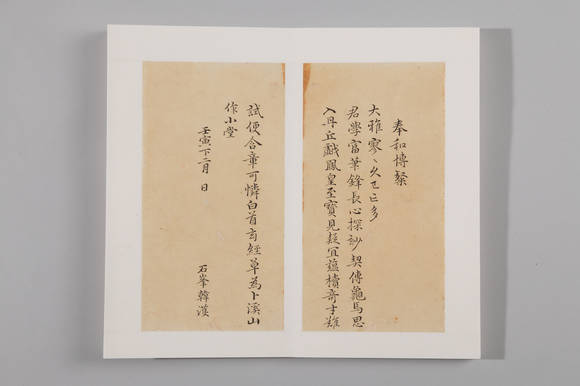 奉和博
大雅寥〻久已亡多
君學富筆鋒長心探玅契傳龜馬思
入丹丘戲鳳皇至寶見疑宜蘊櫝奇才難
試便含章可憐白首玄經草為卜溪山
作小堂
壬寅下二月 日
石峯韓濩